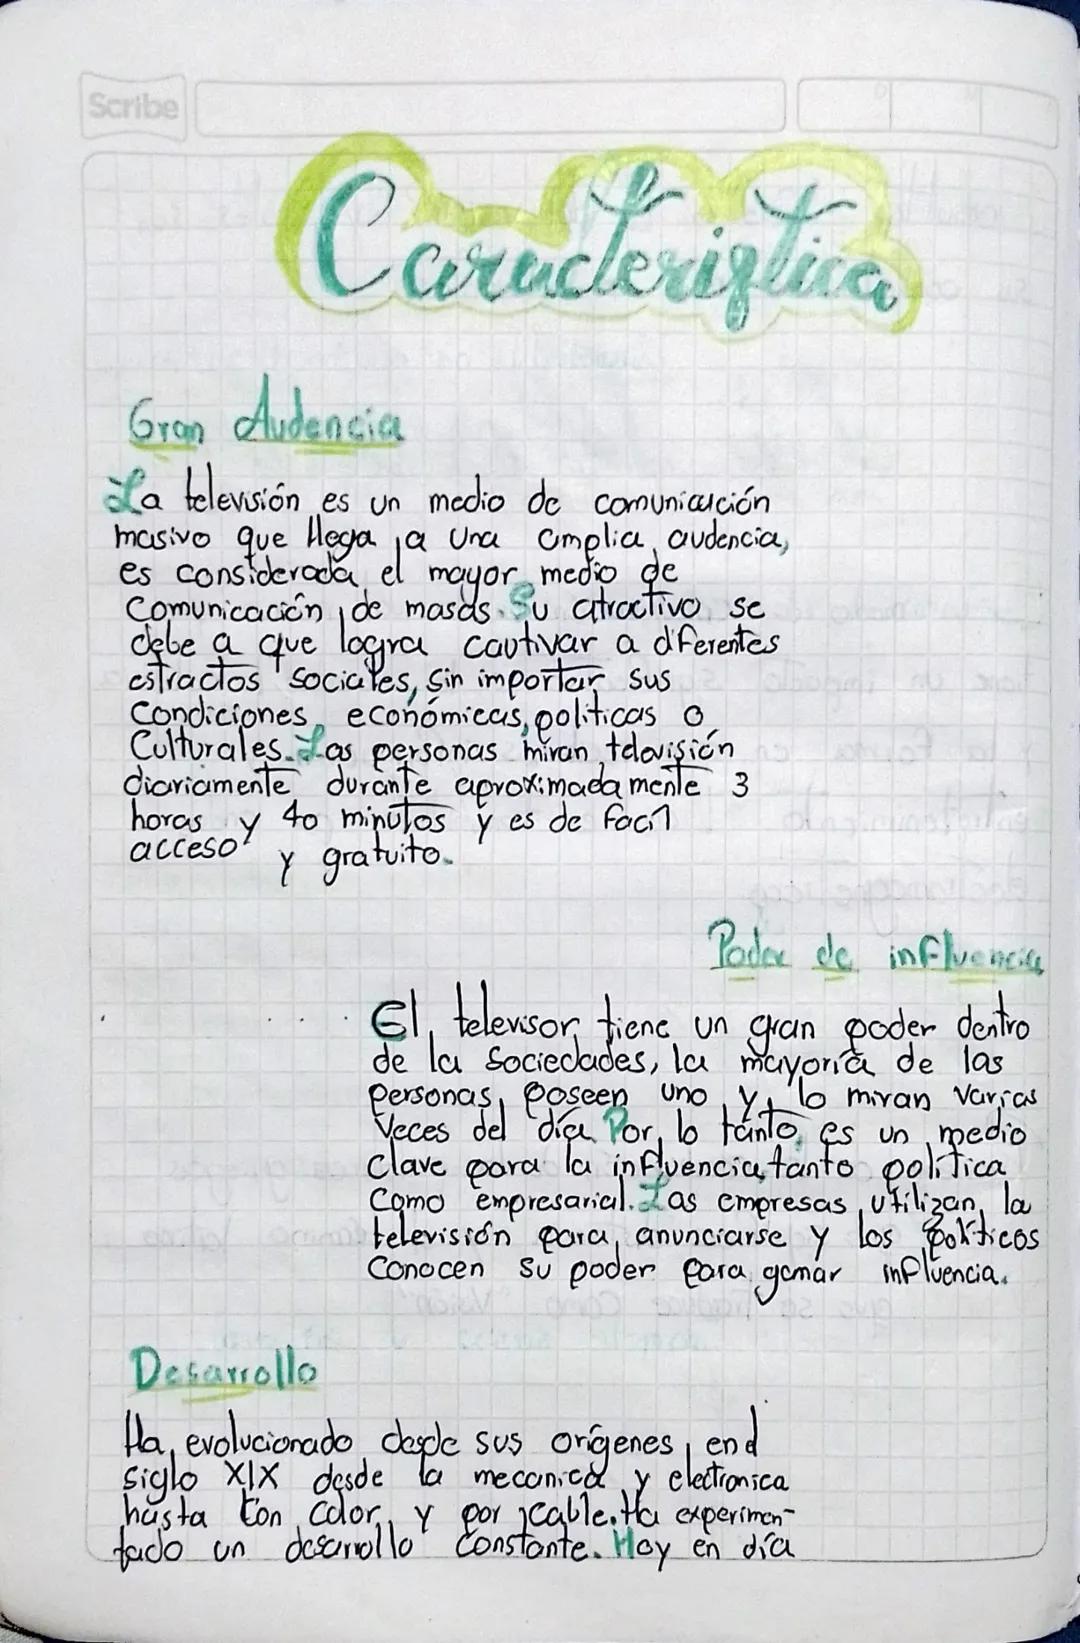 Scribe
Caracteristica
Gran Audencia
La televisión es un medio de comunicación
masivo que llega a una amplia audencia,
es considerada el mayor medio de
Comunicación de masas. Su atractivo se
debe a que logra cautivar a diferentes
estractos sociales, sin importar sus
Condiciones económicas, politicas o
Culturales. Las personas miran televisión
diariamente durante aproximadamente 3
horas y 40 minutos y es de facil
acceso y gratuito.
Poder de influencia
El televisor tiene un gran poder dentro
de la sociedades, la mayoría de las
personas poseen uno y lo miran varias
Veces del día. Por lo tanto es un medio
clave para la influencia, tanto política
Como empresarial. Las empresas utilizan la
televisión para anunciarse y los políticos
Conocen su poder para ganar influencia.
Desarrollo
Ha evolucionado desde sus orígenes en el
siglo XIX desde la mecanica y electronica
hasta con color y por cable. Ha experimen-
tado un desarrollo constante. Hoy en día